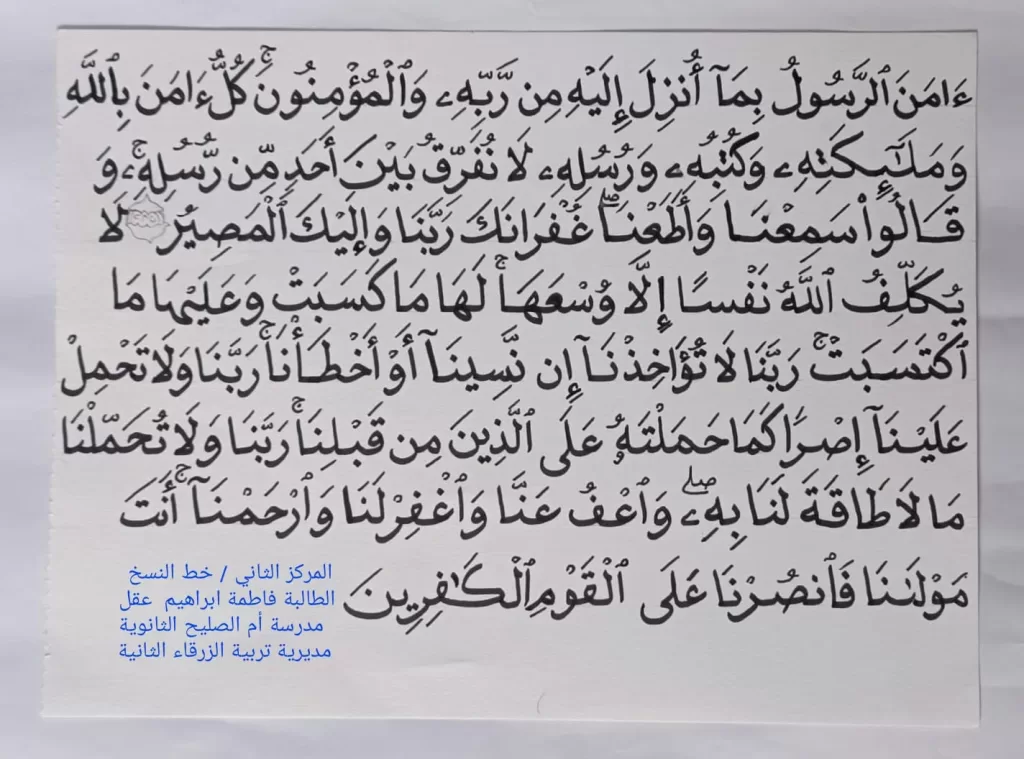 ءَامَنَ ٱلرَّسُولُ بِمَآ أُنزِلَ إِلَيْهِ مِن رَّبِّهِۦ وَٱلْمُؤْمِنُونَۚ كُلٌّ ءَامَنَ بِٱللَّهِ
وَمَلَٰٓئِكَتِهِۦ وَكُتُبِهِۦ وَرُسُلِهِۦ لَا نُفَرِّقُ بَيْنَ أَحَدٍ مِّن رُّسُلِهِۦۚ وَ
قَالُوا۟ سَمِعْنَا وَأَطَعْنَاۖ غُفْرَانَكَ رَبَّنَا وَإِلَيْكَ ٱلْمَصِيرُ ٢٨٥ لَا
يُكَلِّفُ ٱللَّهُ نَفْسًا إِلَّا وُسْعَهَاۚ لَهَا مَا كَسَبَتْ وَعَلَيْهَا مَا
ٱكْتَسَبَتْۗ رَبَّنَا لَا تُؤَاخِذْنَآ إِن نَّسِينَآ أَوْ أَخْطَأْنَاۚ رَبَّنَا وَلَا تَحْمِلْ
عَلَيْنَآ إِصْرًا كَمَا حَمَلْتَهُۥ عَلَى ٱلَّذِينَ مِن قَبْلِنَاۚ رَبَّنَا وَلَا تُحَمِّلْنَا
مَا لَا طَاقَةَ لَنَا بِهِۦۖ وَٱعْفُ عَنَّا وَٱغْفِرْ لَنَا وَٱرْحَمْنَآۚ أَنتَ
مَوْلَىٰنَا فَٱنصُرْنَا عَلَى ٱلْقَوْمِ ٱلْكَٰفِرِينَ
المركز الثاني / خط النسخ
الطالبة فاطمة ابراهيم عقل
مدرسة أم الصليح الثانوية
مديرية تربية الزرقاء الثانية